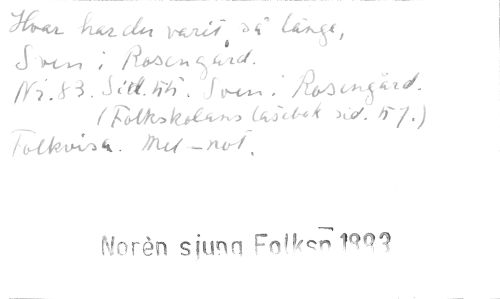 Hvar har du varit så länge,
Sven i Rosengård.
Nr. 83. Sid. 55. Sven i Rosengård.
(Folkskolans läsebok sid. 57.)
Folkvisa. Mel-not.
Norèn sjung Folksn 1893